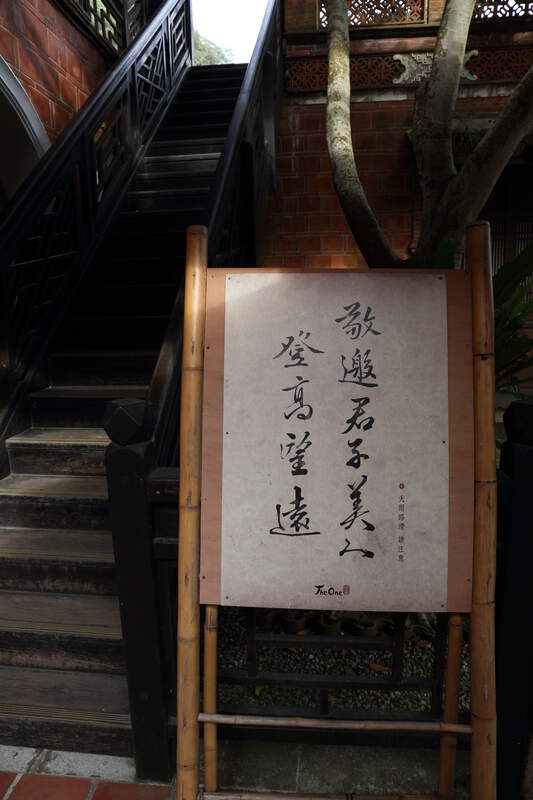 敬邀君子美人
登高望遠
天雨路滑 請注意
The One